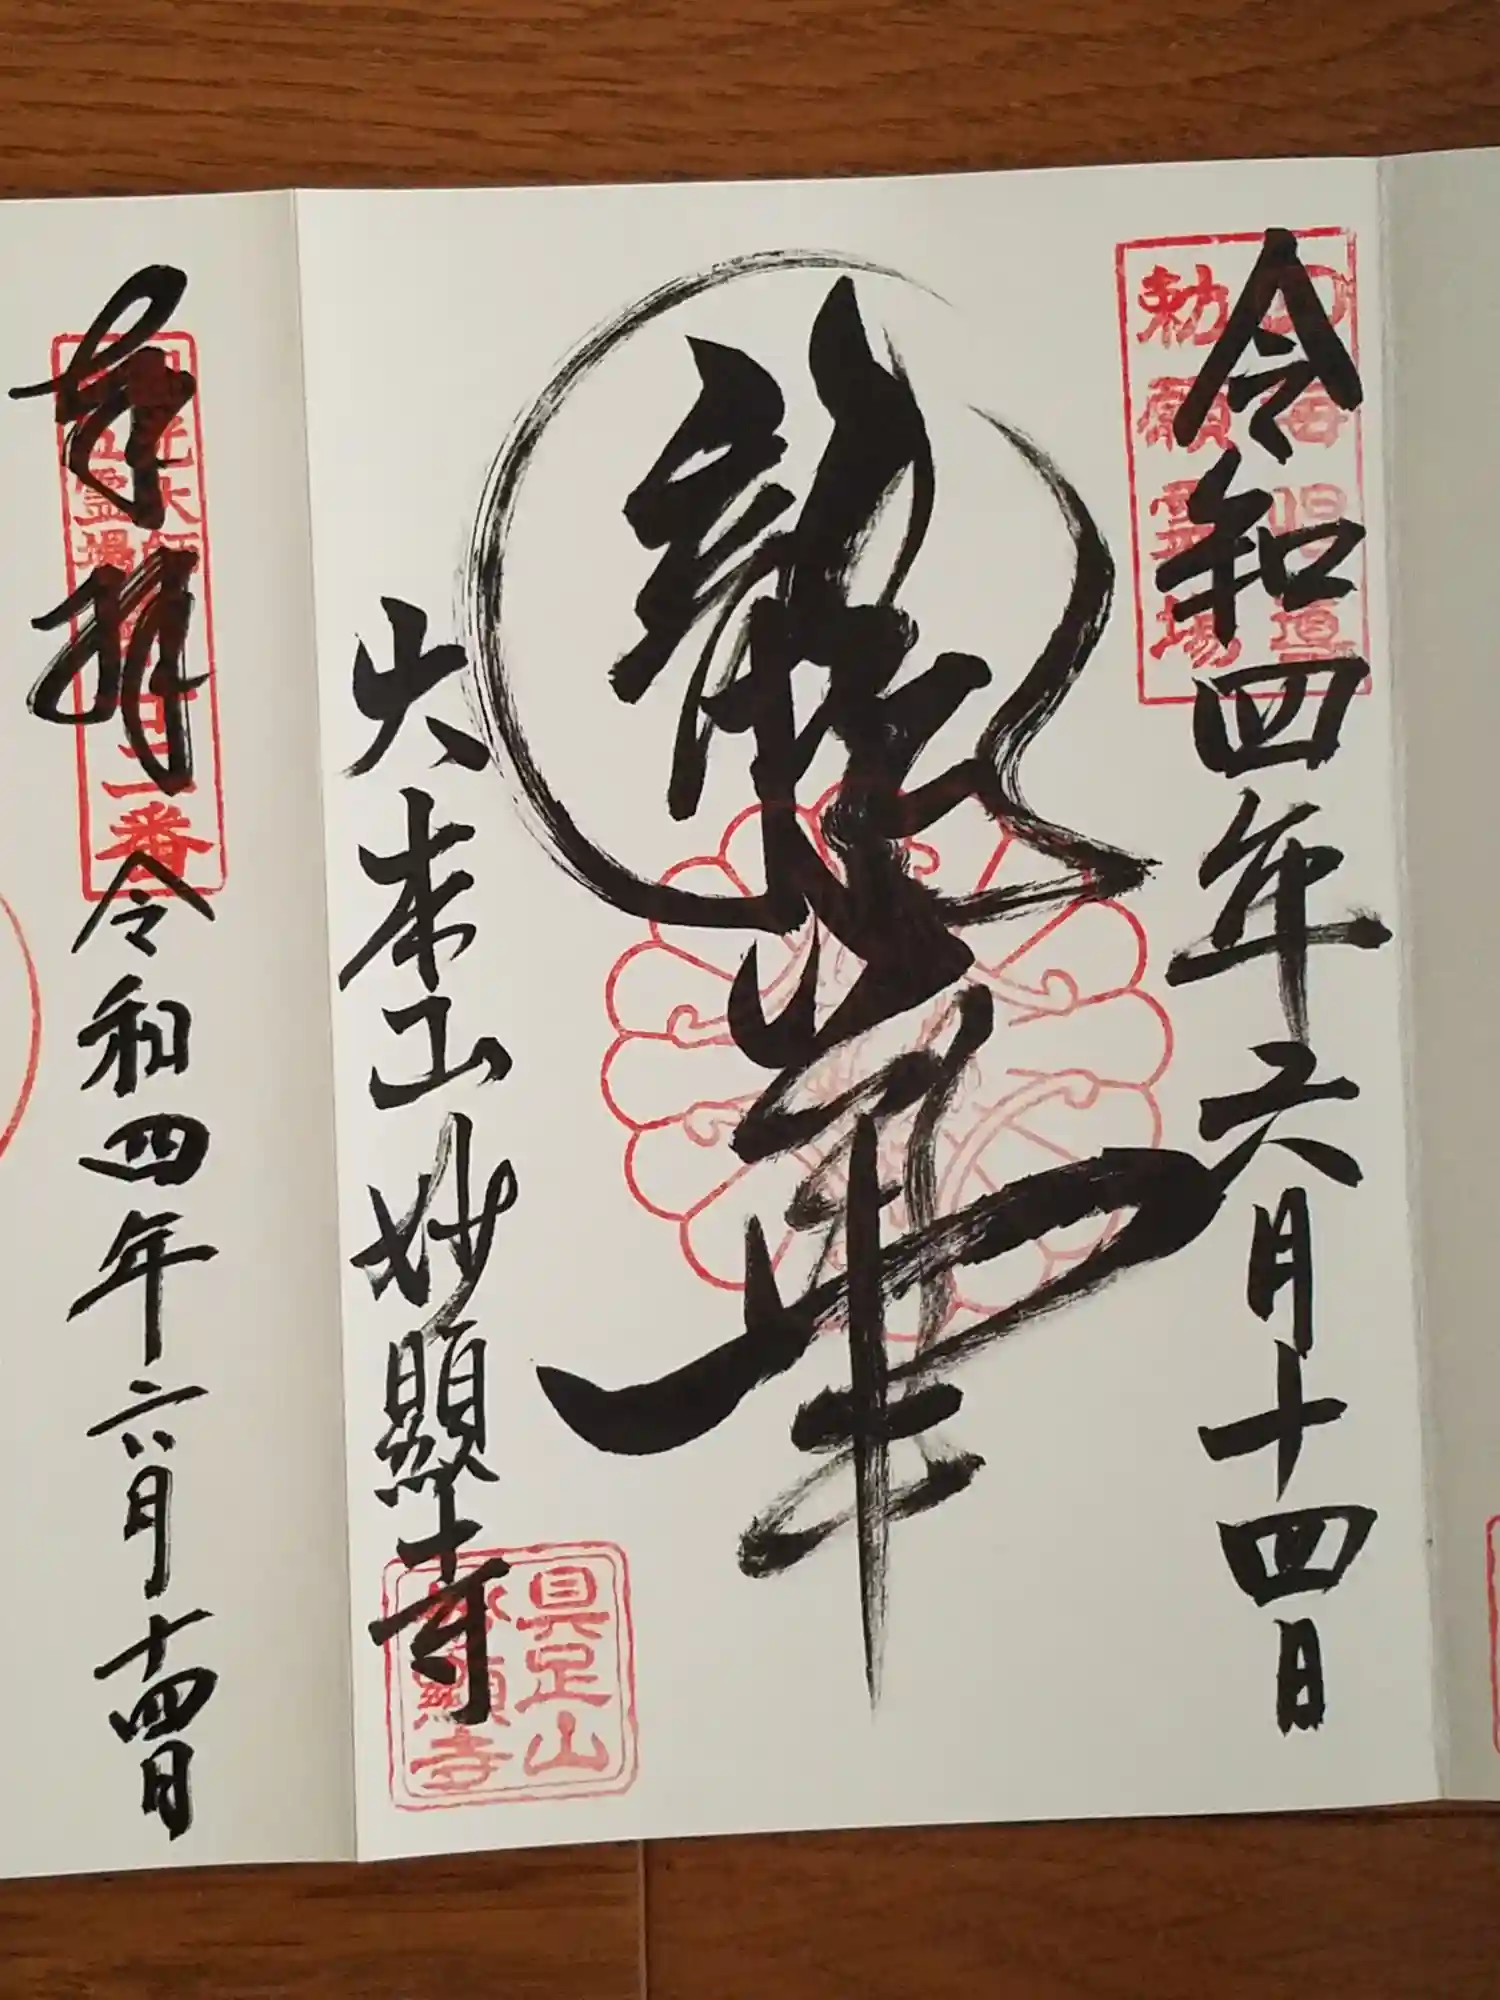 令和四年六月十四日
四海唱導
勅願霊場
龍華
大本山妙顯寺
具足山
妙顯寺
奉拝
大師
霊場
番
令和四年六月十四日